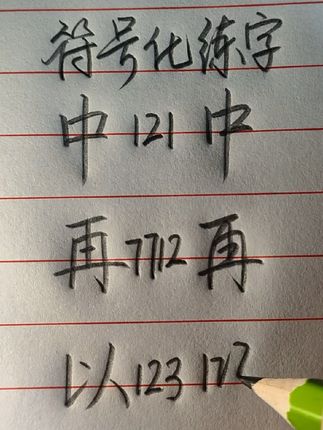 符号化练字
中 121 中
再 7712 再
以 123 172